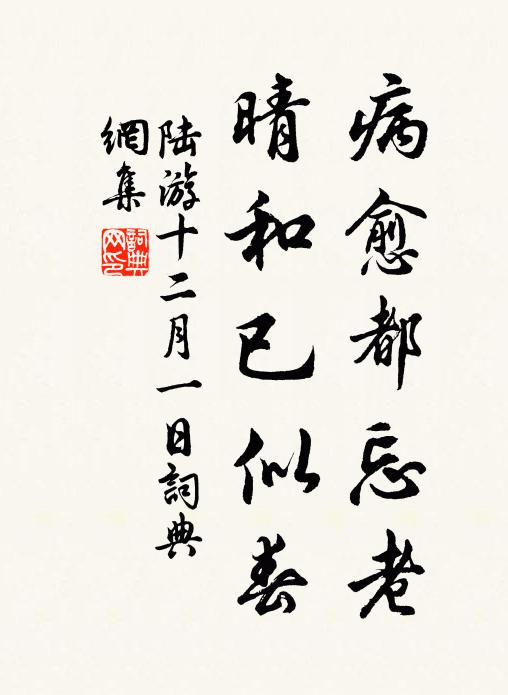 病愈都忘老
晴和已似春
陆游十二月一日詞典
網集
詞典
网印